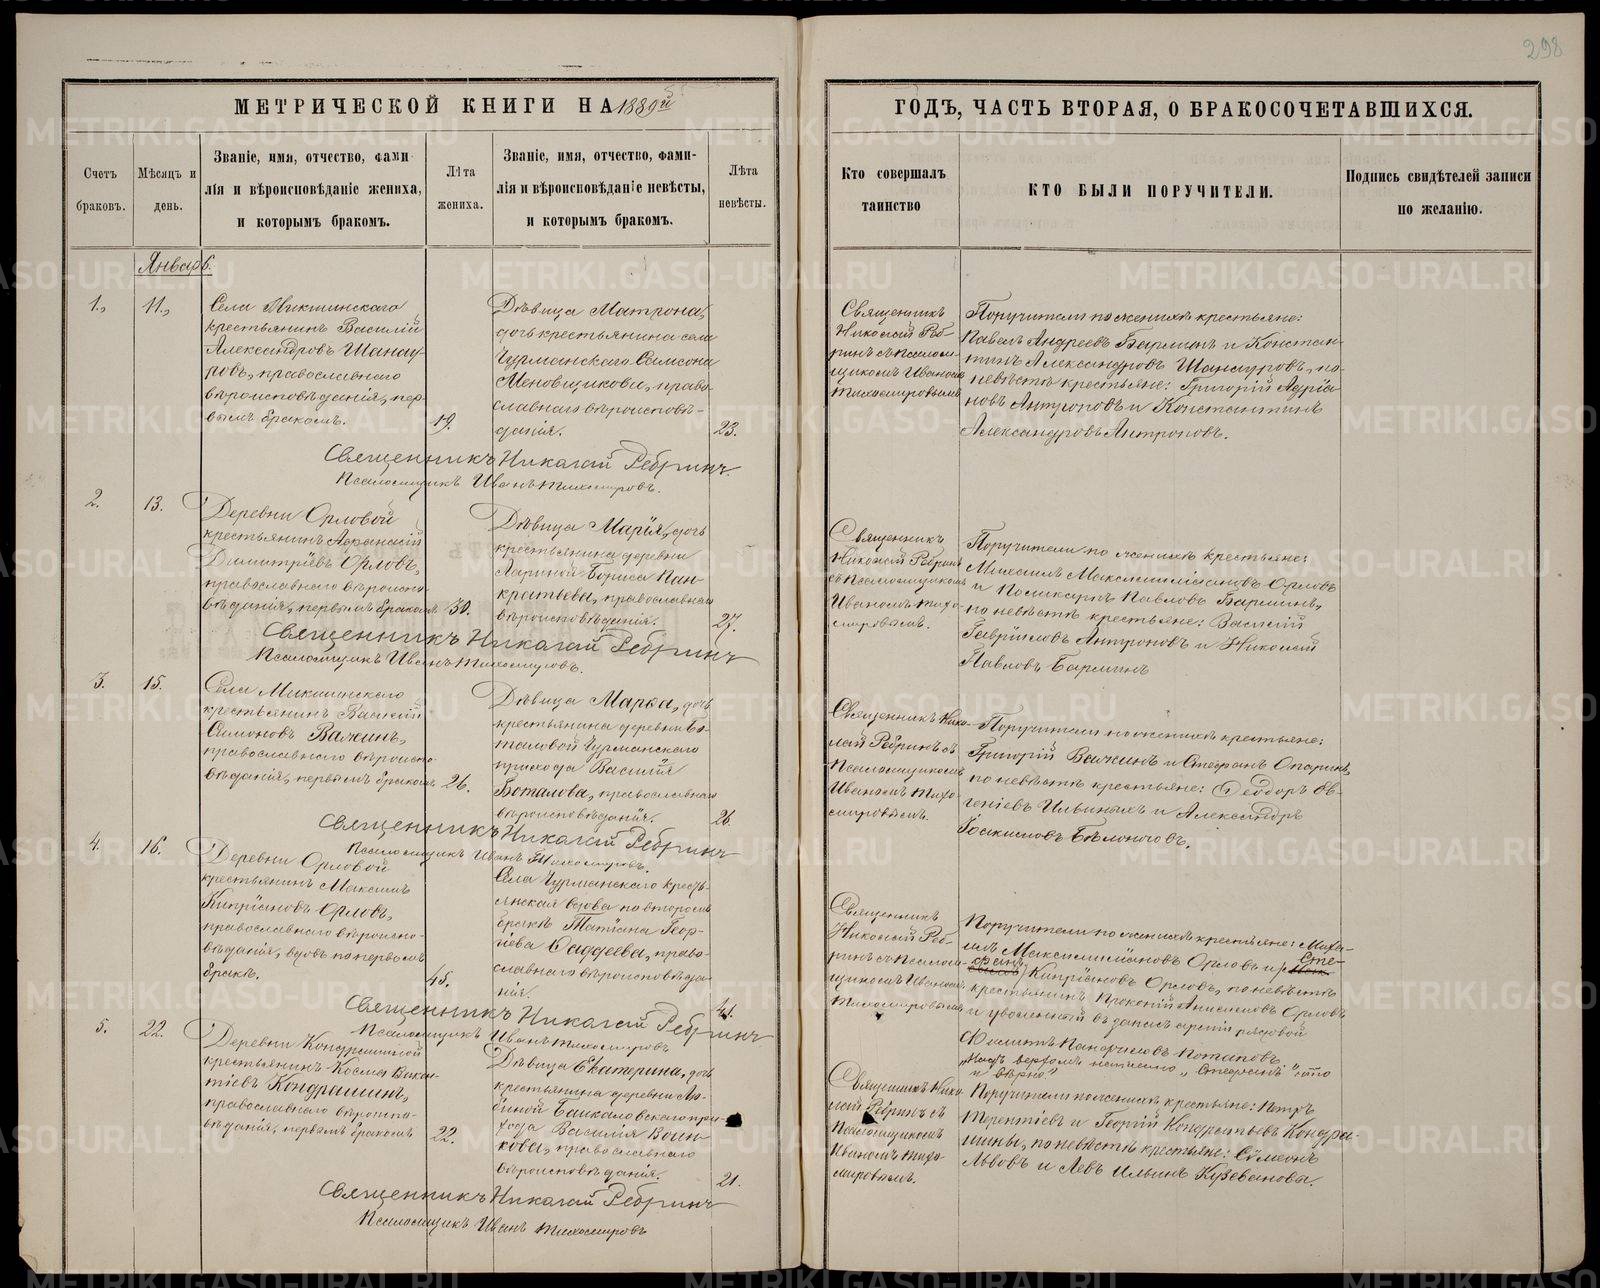 298
МЕТРИЧЕСКОЙ КНИГИ НА 1889й
ГОДЪ, ЧАСТЬ ВТОРАЯ, О БРАКОСОЧЕТАВШИХСЯ.
Счетъ браковъ.
Мѣсяцъ и день.
Званіе, имя, отчество, фами-
лія и вѣроисповѣданіе жениха,
и которымъ бракомъ.
Лѣта жениха.
Званіе, имя, отчество, фами-
лія и вѣроисповѣданіе невѣсты,
и которымъ бракомъ.
Лѣта невѣсты.
Кто совершалъ
таинство
КТО БЫЛИ ПОРУЧИТЕЛИ.
Подпись свидѣтелей записи
по желанію.
1.
11.
крестьянинъ Василій
Александровъ Шанау-
ровъ, православнаго
вѣроисповѣданія, пер-
вымъ бракомъ.
19.
Дѣвица Матрона,
дочь крестьянина села
Чурманскаго Самсона
Меновщикова, право-
славнаго вѣроисповѣ-
данія.
23.
Священникъ
Николай Реб-
ринъ съ псалом-
щикомъ Иваномъ
Тихомировымъ
Поручители по женихѣ крестьяне:
Павелъ Андреевъ Бармин и Констан-
тинъ Александровъ Шанауровъ, по
невѣстѣ крестьяне: Григорій Адріа-
новъ Антроповъ и Константинъ
Александровъ Антроповъ.
Священникъ Николай Ребринъ
Псаломщикъ Иванъ Тихомировъ.
2.
13.
Деревни Орловой
крестьянинъ Афанасій
Димитріевъ Орловъ,
православнаго вѣроиспо-
вѣданія, первымъ бракомъ
30.
Дѣвица Марія, дочь
крестьянина деревни
Лариной Бориса Пан-
кратьева, православнаго
вѣроисповѣданія.
27.
Священникъ
Николай Ребринъ
съ псаломщикомъ
Иваномъ Тихо-
мировымъ.
Поручители по женихѣ крестьяне:
Михаилъ Максимиліановъ Орловъ
и Поликарпъ Павловъ Барминъ,
по невѣстѣ крестьяне: Василій
Гавріиловъ Антроповъ и Николай
Павловъ Барминъ
Священникъ Николай Ребринъ
Псаломщикъ Иванъ Тихомировъ.
3.
15.
крестьянинъ Василій
Симоновъ Важинъ,
православнаго вѣроиспо-
вѣданія, первымъ бракомъ
26.
крестьянина деревни Бо-
таловой Чурманскаго
прихода Василія
Боталова, православнаго
вѣроисповѣданія.
26.
Священникъ Нико-
лай Ребринъ съ
псаломщикомъ
Иваномъ Тихо-
мировымъ.
Поручители по женихѣ крестьяне:
Григорій Важинъ и Стефанъ Опаринъ,
по невѣстѣ крестьяне: Ѳеодоръ Ев-
геніевъ Ильиныхъ и Александръ
Іоакимовъ Бѣлоноговъ.
Священникъ Николай Ребринъ
Псаломщикъ Иванъ Тихомировъ.
4.
16.
Деревни Орловой
крестьянинъ Максимъ
Кипріановъ Орловъ,
православнаго вѣроиспо-
вѣданія, вдовъ по первомъ
бракѣ.
45.
Села Чурманскаго кресть-
янская вдова по второмъ
бракѣ Татіана Геор-
гіева Фаддеева, право-
славнаго вѣроисповѣда-
нія.
41.
Священникъ
Николай Реб-
ринъ съ псалом-
щикомъ Иваномъ
Тихомировымъ
Поручители по женихѣ крестьяне: Миха-
илъ Максимиліановъ Орловъ и Сте-
фанъ Кипріановъ Орловъ, по невѣстѣ
крестьянинъ Прокопій Анисимовъ Орловъ
и уволенный въ запасъ арміи рядовой
Филиппъ Панфиловъ Потаповъ
"Надъ верхомъ написано "Стефанъ" что
и вѣрно."
Священникъ Николай Ребринъ
Псаломщикъ Иванъ Тихомировъ
5.
22.
Деревни Кондрашиной
крестьянинъ Косма Викен-
тіевъ Кондрашинъ,
православнаго вѣроиспо-
вѣданія, первымъ бракомъ
22.
Дѣвица Екатерина, дочь
крестьянина деревни Ля-
пиной Байкаловскаго при-
хода Василія Воин-
кова, православнаго
вѣроисповѣданія.
21.
Священникъ Нико-
лай Ребринъ съ
псаломщикомъ
Иваномъ Тихо-
мировымъ.
Поручители по женихѣ крестьяне: Петръ
Терентіевъ и Георгій Кондратьевъ Кондра-
шины, по невѣстѣ крестьяне: Сѵмеонъ
Львовъ и Левъ Ильинъ Кузевановы.
Священникъ Николай Ребринъ
Псаломщикъ Иванъ Тихомировъ
METRIKI.GASO-URAL.RU